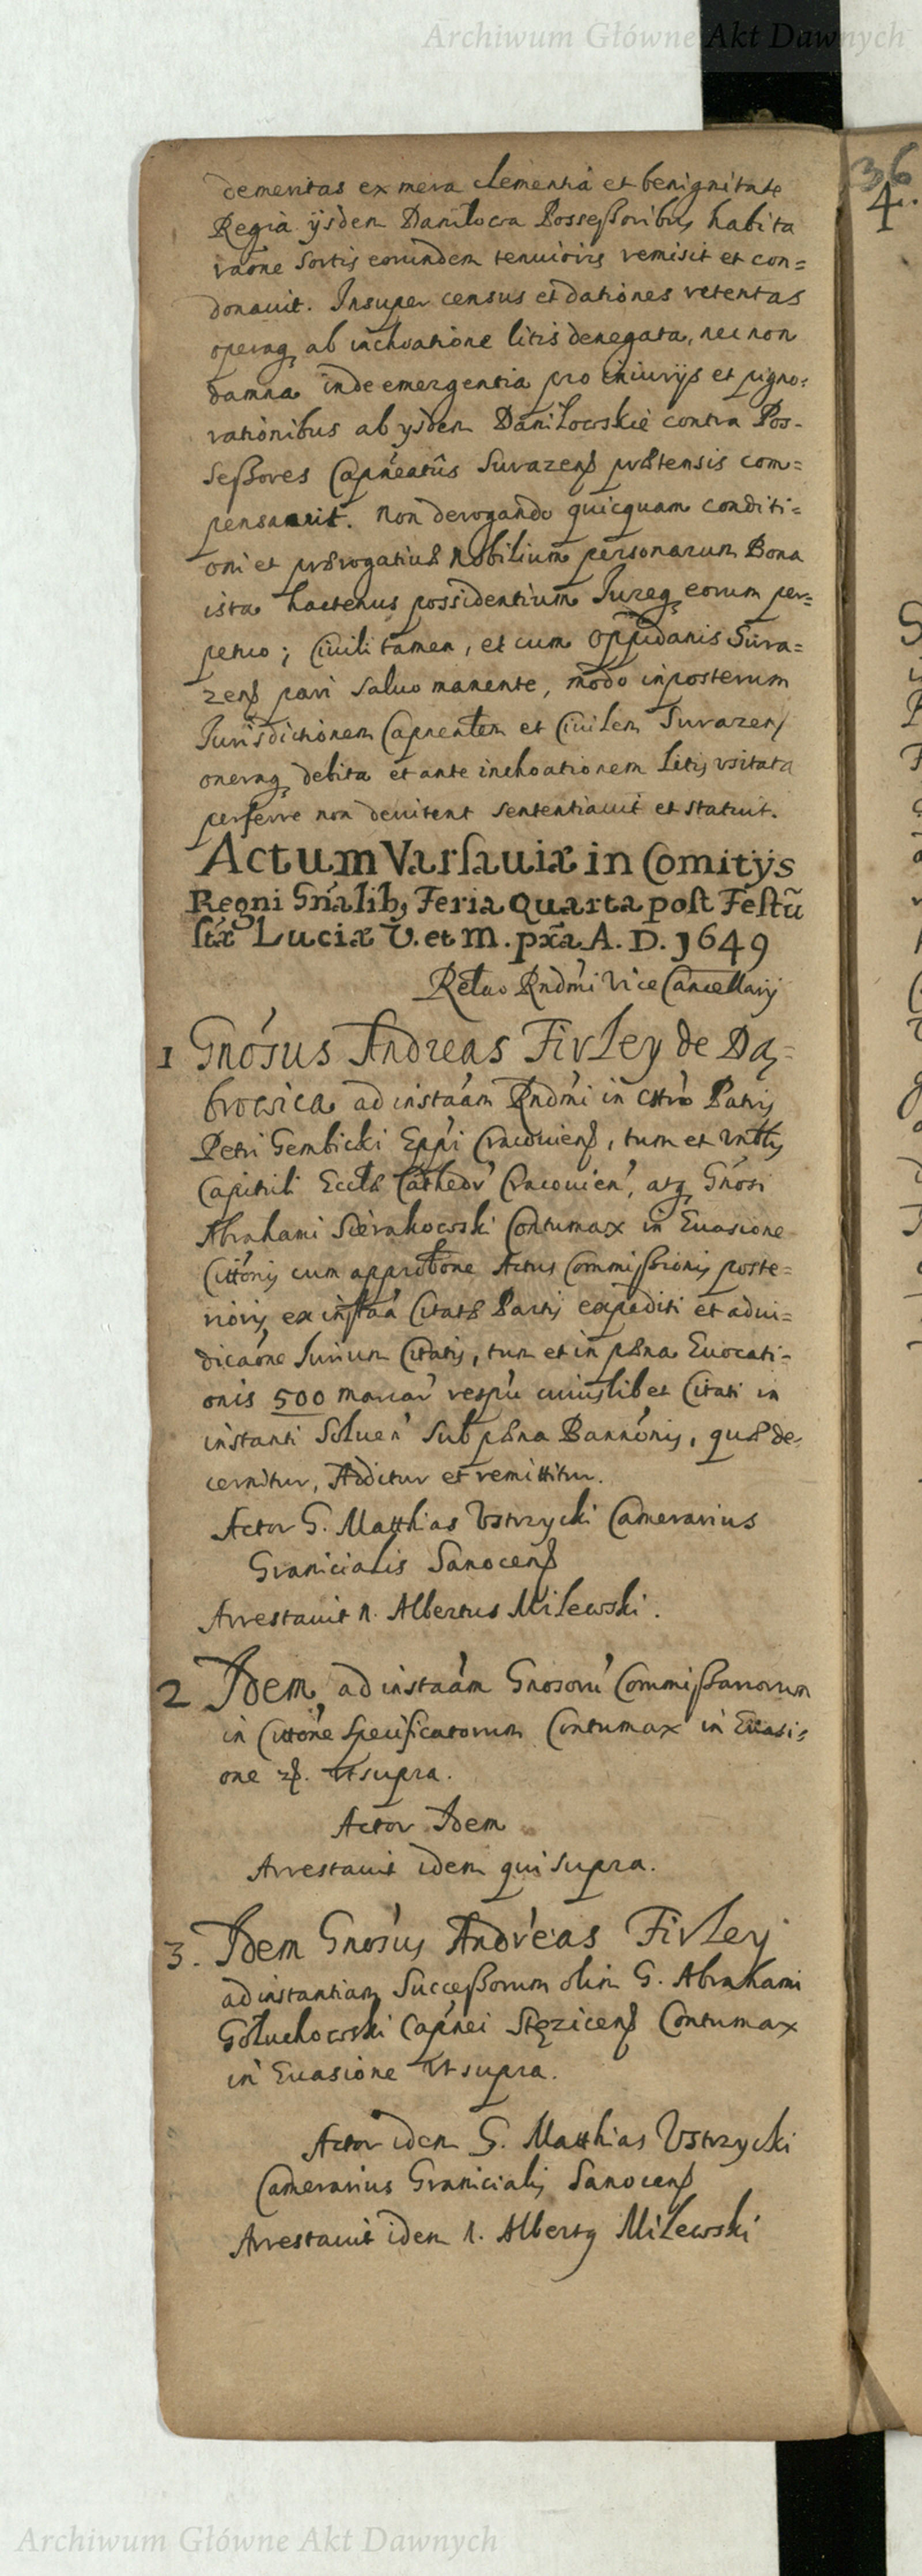 Archiwum Główne Akt Dawnych
36
4.
demeritas ex mera clementia et benignitate
Regia ijsdem Danilowa Possessoribus habita
raone sortis eorundem tenuioris remisit et con=
donauit. Insuper census et dationes retentas
operasq ab inchoatione litis denegata, nec non
damna inde emergentia pro iniurijs et pigno=
rationibus ab ysdem Danilowskie contra Pos-
sessores Capneatûs Surazens prætensis com=
pensauit. Non derogando quicquam conditi=
oni et prærogatiuæ Nobilium personarum Bona
ista hactenus possidentium Iureq eorum per=
petuo; Ciuili tamen, et cum Oppidanis Sura=
zens pari saluo manente, modo inposterum
Jurisdictionem Capnealem et Ciuilem Surazens
oneraq debita et ante inchoationem Litis vsitata
perferre non deuitent sententiauit et statuit.
Actum Varsauiæ in Comitijs
Regni Gnalib, Feria Quarta post Festũ
stæ Luciæ V. et M. pxa A. D. 1649
Relao Rndmi Vice Cancellarij
1 Gnosus Andreas Firley de Dą=
browica ad instaam Rndmi in Chro Patris
Petri Gembicki Eppi Cracouiens, tum et Vnlis
Capituli Ecclæ Cathedr Cracouien, atq Gnosi
Abrahami Sierakowski Contumax in Euasione
Cittonis cum approbone Actus Commissionis poste=
rioris ex instaa Citatæ Partis expediti et adiu=
dicaone Iurium Citatis, tum et in pæna Euocati=
onis 500 marcar respu cuiuslibet Citati in
instanti Soluen sub pæna Bannonis, quæ de=
cernitur, Additur et remittitur.
Actor G. Matthias Vstrzycki Camerarius
Granicialis Sanocens
Arrestauit N. Albertus Milewski.
2 Idem ad instaam Gnosoru Commissariorum
in Cittone specificatorum Contumax in Euasi=
one Vt supra.
Actor Idem
Arrestauit idem qui supra.
3. Idem Gnosus Andreas Firley
ad instantiam Successorum olim G. Abrahami
Goluchowski Capnei Stęzicens Contumax
in Euasione Vt supra.
Actor idem G. Matthias Vstrzycki
Camerarius Granicialis Sanocens
Arrestauit idem N. Albertq Milewski
Archiwum Główne Akt Dawnych